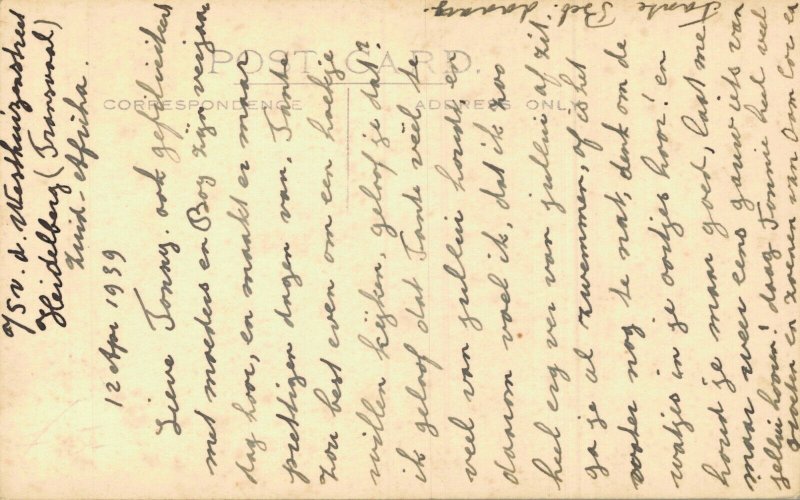 a/s v. d. Westhuizenstreet
Heidelberg (Transvaal)
Zuid-Afrika.
12 Apr 1939
Lieve Tonny. ook gefeliciteerd
met moeders en Boy zijn verjaar
dag hoor, en maakt er maar
prettigen dagen van, Tante
zou best even om een hoekje
willen kijken, geloof je dat?
ik geloof dat Tante veel te
veel van jullie houdt, en
daarom voel ik, dat ik zoo
heel erg ver van jullie af zit.
ga je al zwemmen, of is het
water nog te nat, denk om de
watjes in je oortjes hoor! en
houd je maar goed, laat me
maar weer eens gauw iets van
jullie hooren! daag Tonnie heel veel
groeten en zoenen van Oom Coc en
Tante Bet. daaag.
POST CARD.
CORRESPONDENCE
ADDRESS ONLY